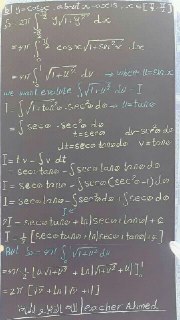 b) y = cosx about x-axis, x ∈ [-π/2, π/2]
S = 2π∫ y √(1+y'²) dx
= 4π ∫₀^{π/2} cosx √(1+sin²x) dx
= 4π ∫₀¹ √(1+u²) du → where u = sinx
we want evaluate ∫√(1+u²) du = I
I = ∫√(1+tan²θ) sec²θ dθ → u = tanθ
= ∫ secθ · sec²θ dθ
t = secθ dv = sec²θ dθ
dt = secθ tanθ dθ v = tanθ
I = tv - ∫v dt
= secθ tanθ - ∫ secθ tan²θ dθ
I = secθ tanθ - ∫ secθ (sec²θ - 1) dθ
I = secθ tanθ - ∫ sec³θ dθ + ∫ secθ dθ
2I = secθ tanθ + ln|secθ + tanθ| + c
I = ½ [secθ tanθ + ln|secθ + tanθ|] + c
But S = 4π ∫₀¹ √(1+u²) du
= 4π · ½ [u √(1+u²) + ln|√(1+u²) + u|]₀¹
= 2π [√2 + ln|√2 + 1|]
Teacher Ahmed